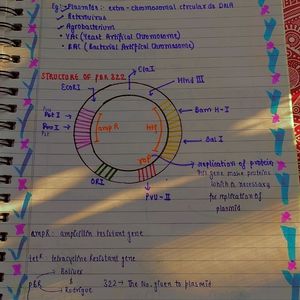 Eg:- Plasmids : extra-chromosomal circular ds DNA
• Retrovirus
• Agrobacterium
• YAC (Yeast Artifical Chromosome)
• BAC (Bacterial Artifical Chromosome)
STRUCTURE OF pBR 322
ClaI
EcoRI
Hind III
Pst I
Pvu I
ampR
tet
Bam H-I
Sal I
rop
Replication of protein
gene make proteins
which is necessary
for replication of
plasmid
ORI
Pvu-II
ampR : ampicillin resistant gene
tetR : tetracycline Resistant gene
Boliver
pBR &
Rodrigue
322 → The No. given to plasmid